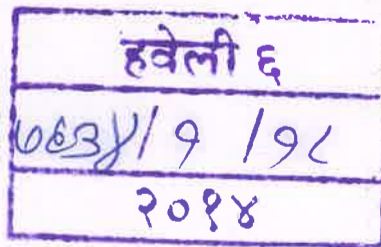 हवेली ६
७६३४/१ /१८
२०१४